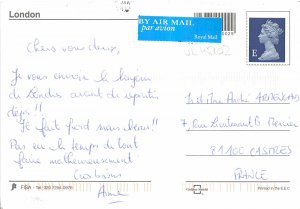 London
BY AIR MAIL
par avion
Royal Mail
E
Chers vous deux,
Je vous envoie le bonjour
de Londres avant de repartir
déjà !!
Je fait froid mais beau!
Pas eu le temps de tout
faire malheureusement
Gros bisous
Aimé
M et Mme André
7, Rue Lieutenant B. Mercier
81100 CASTRES
FRANCE
FISA - Tel:
Printed in the E.E.C